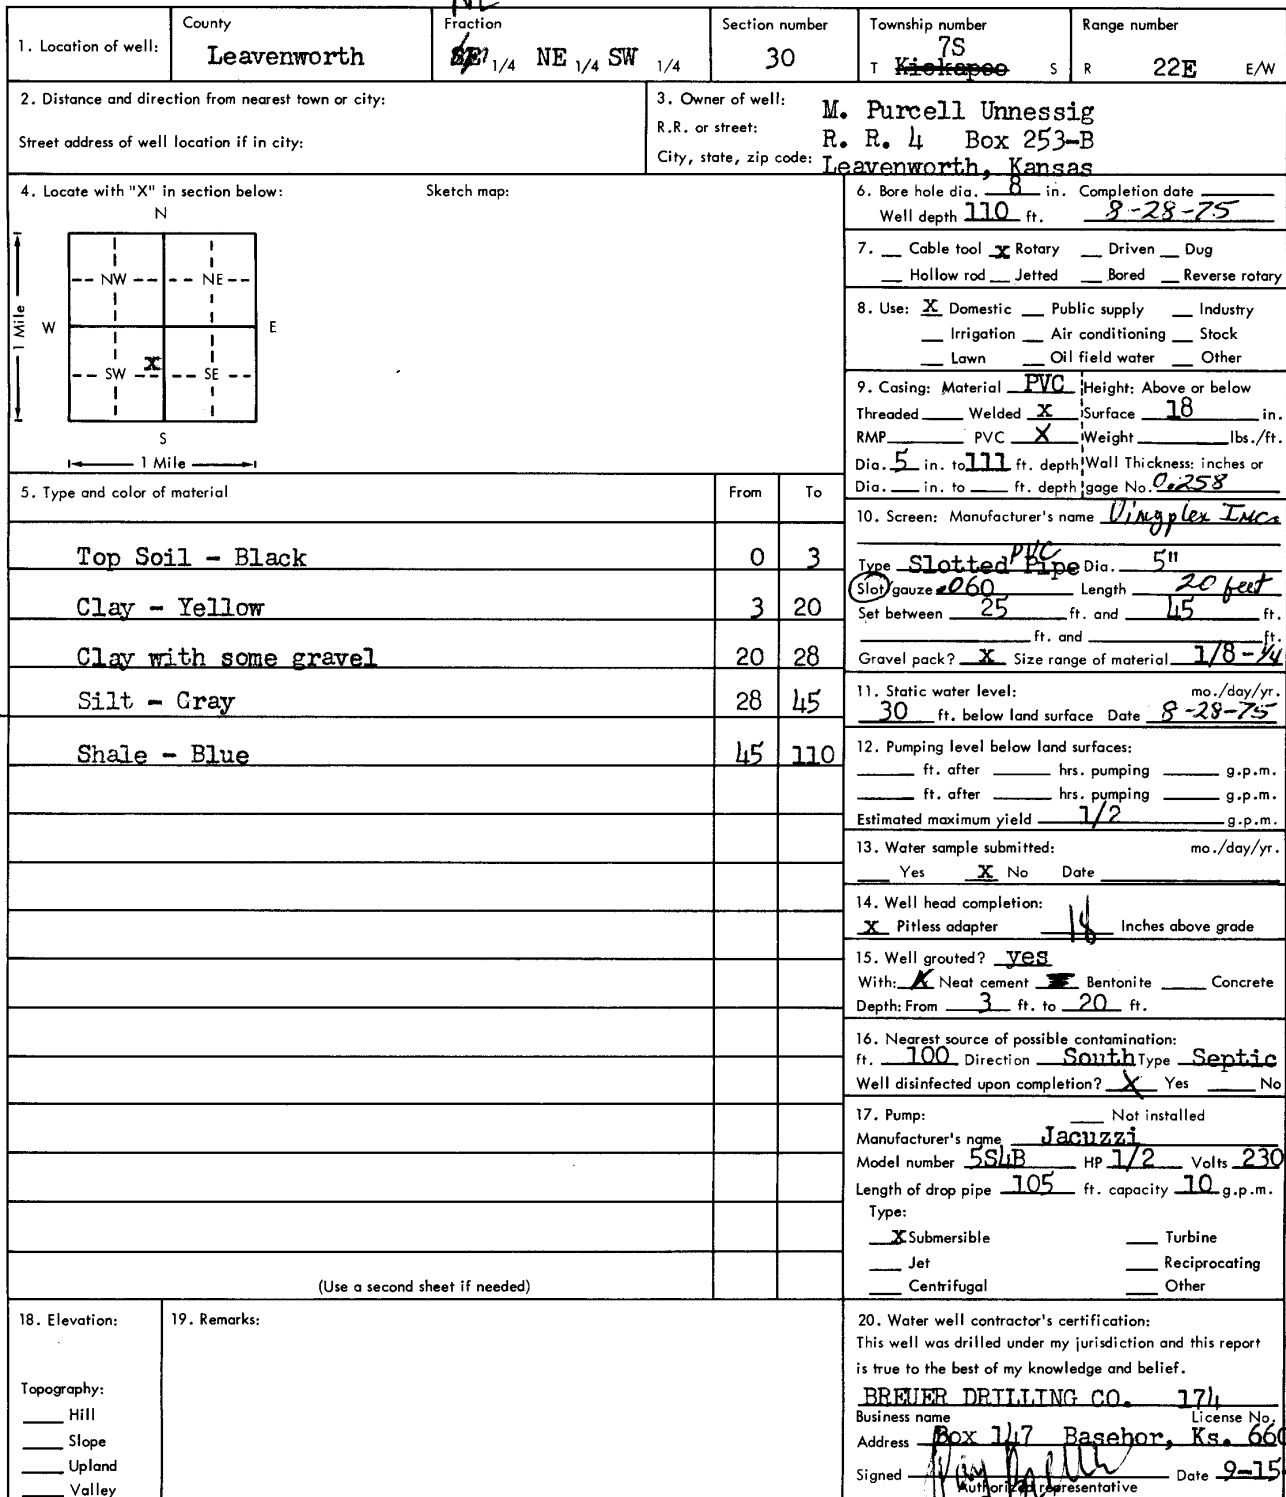 1. Location of well:
County
Leavenworth
Fraction
NE
1/4 NE 1/4 SW 1/4
Section number
30
Township number
7S
T Kickapoo S
Range number
R 22E E/W
2. Distance and direction from nearest town or city:
Street address of well location if in city:
3. Owner of well: M. Purcell Unnessig
R.R. or street: R. R. 4 Box 253-B
City, state, zip code: Leavenworth, Kansas
4. Locate with "X" in section below: Sketch map:
N
NW NE
W E
1 Mile
X
SW SE
S
1 Mile
5. Type and color of material From To
Top Soil - Black 0 3
Clay - Yellow 3 20
Clay with some gravel 20 28
Silt - Gray 28 45
Shale - Blue 45 110
(Use a second sheet if needed)
6. Bore hole dia. 8 in. Completion date
Well depth 110 ft. 8-28-75
7. __ Cable tool X Rotary __ Driven __ Dug
__ Hollow rod __ Jetted __ Bored __ Reverse rotary
8. Use: X Domestic __ Public supply __ Industry
__ Irrigation __ Air conditioning __ Stock
__ Lawn __ Oil field water __ Other
9. Casing: Material PVC Height: Above or below
Threaded ____ Welded X Surface 18 in.
RMP ____ PVC X Weight ____ lbs./ft.
Dia. 5 in. to 111 ft. depth Wall Thickness: inches or
Dia. ___ in. to ___ ft. depth gage No. 0.258
10. Screen: Manufacturer's name
PVC
Type Slotted Pipe Dia. 5"
Slot/gauze .060 Length 20 feet
Set between 25 ft. and 45 ft.
____ ft. and ____ ft.
Gravel pack? X Size range of material 1/8 - 1/4
11. Static water level: mo./day/yr.
30 ft. below land surface Date 8-28-75
12. Pumping level below land surfaces:
____ ft. after ____ hrs. pumping ____ g.p.m.
____ ft. after ____ hrs. pumping ____ g.p.m.
Estimated maximum yield 1/2 g.p.m.
13. Water sample submitted: mo./day/yr.
__ Yes X No Date
14. Well head completion:
X Pitless adapter 18 Inches above grade
15. Well grouted? yes
With: X Neat cement Bentonite ____ Concrete
Depth: From 3 ft. to 20 ft.
16. Nearest source of possible contamination:
ft. 100 Direction South Type Septic
Well disinfected upon completion? X Yes ____ No
17. Pump: ____ Not installed
Manufacturer's name Jacuzzi
Model number 5S4B HP 1/2 Volts 230
Length of drop pipe 105 ft. capacity 10 g.p.m.
Type:
X Submersible ____ Turbine
____ Jet ____ Reciprocating
____ Centrifugal ____ Other
18. Elevation:
Topography:
____ Hill
____ Slope
____ Upland
____ Valley
19. Remarks:
20. Water well contractor's certification:
This well was drilled under my jurisdiction and this report
is true to the best of my knowledge and belief.
BREUER DRILLING CO. 174
Business name License No.
Address Box 147 Basehor, Ks. 660
Signed Date 9-15
Authorized representative